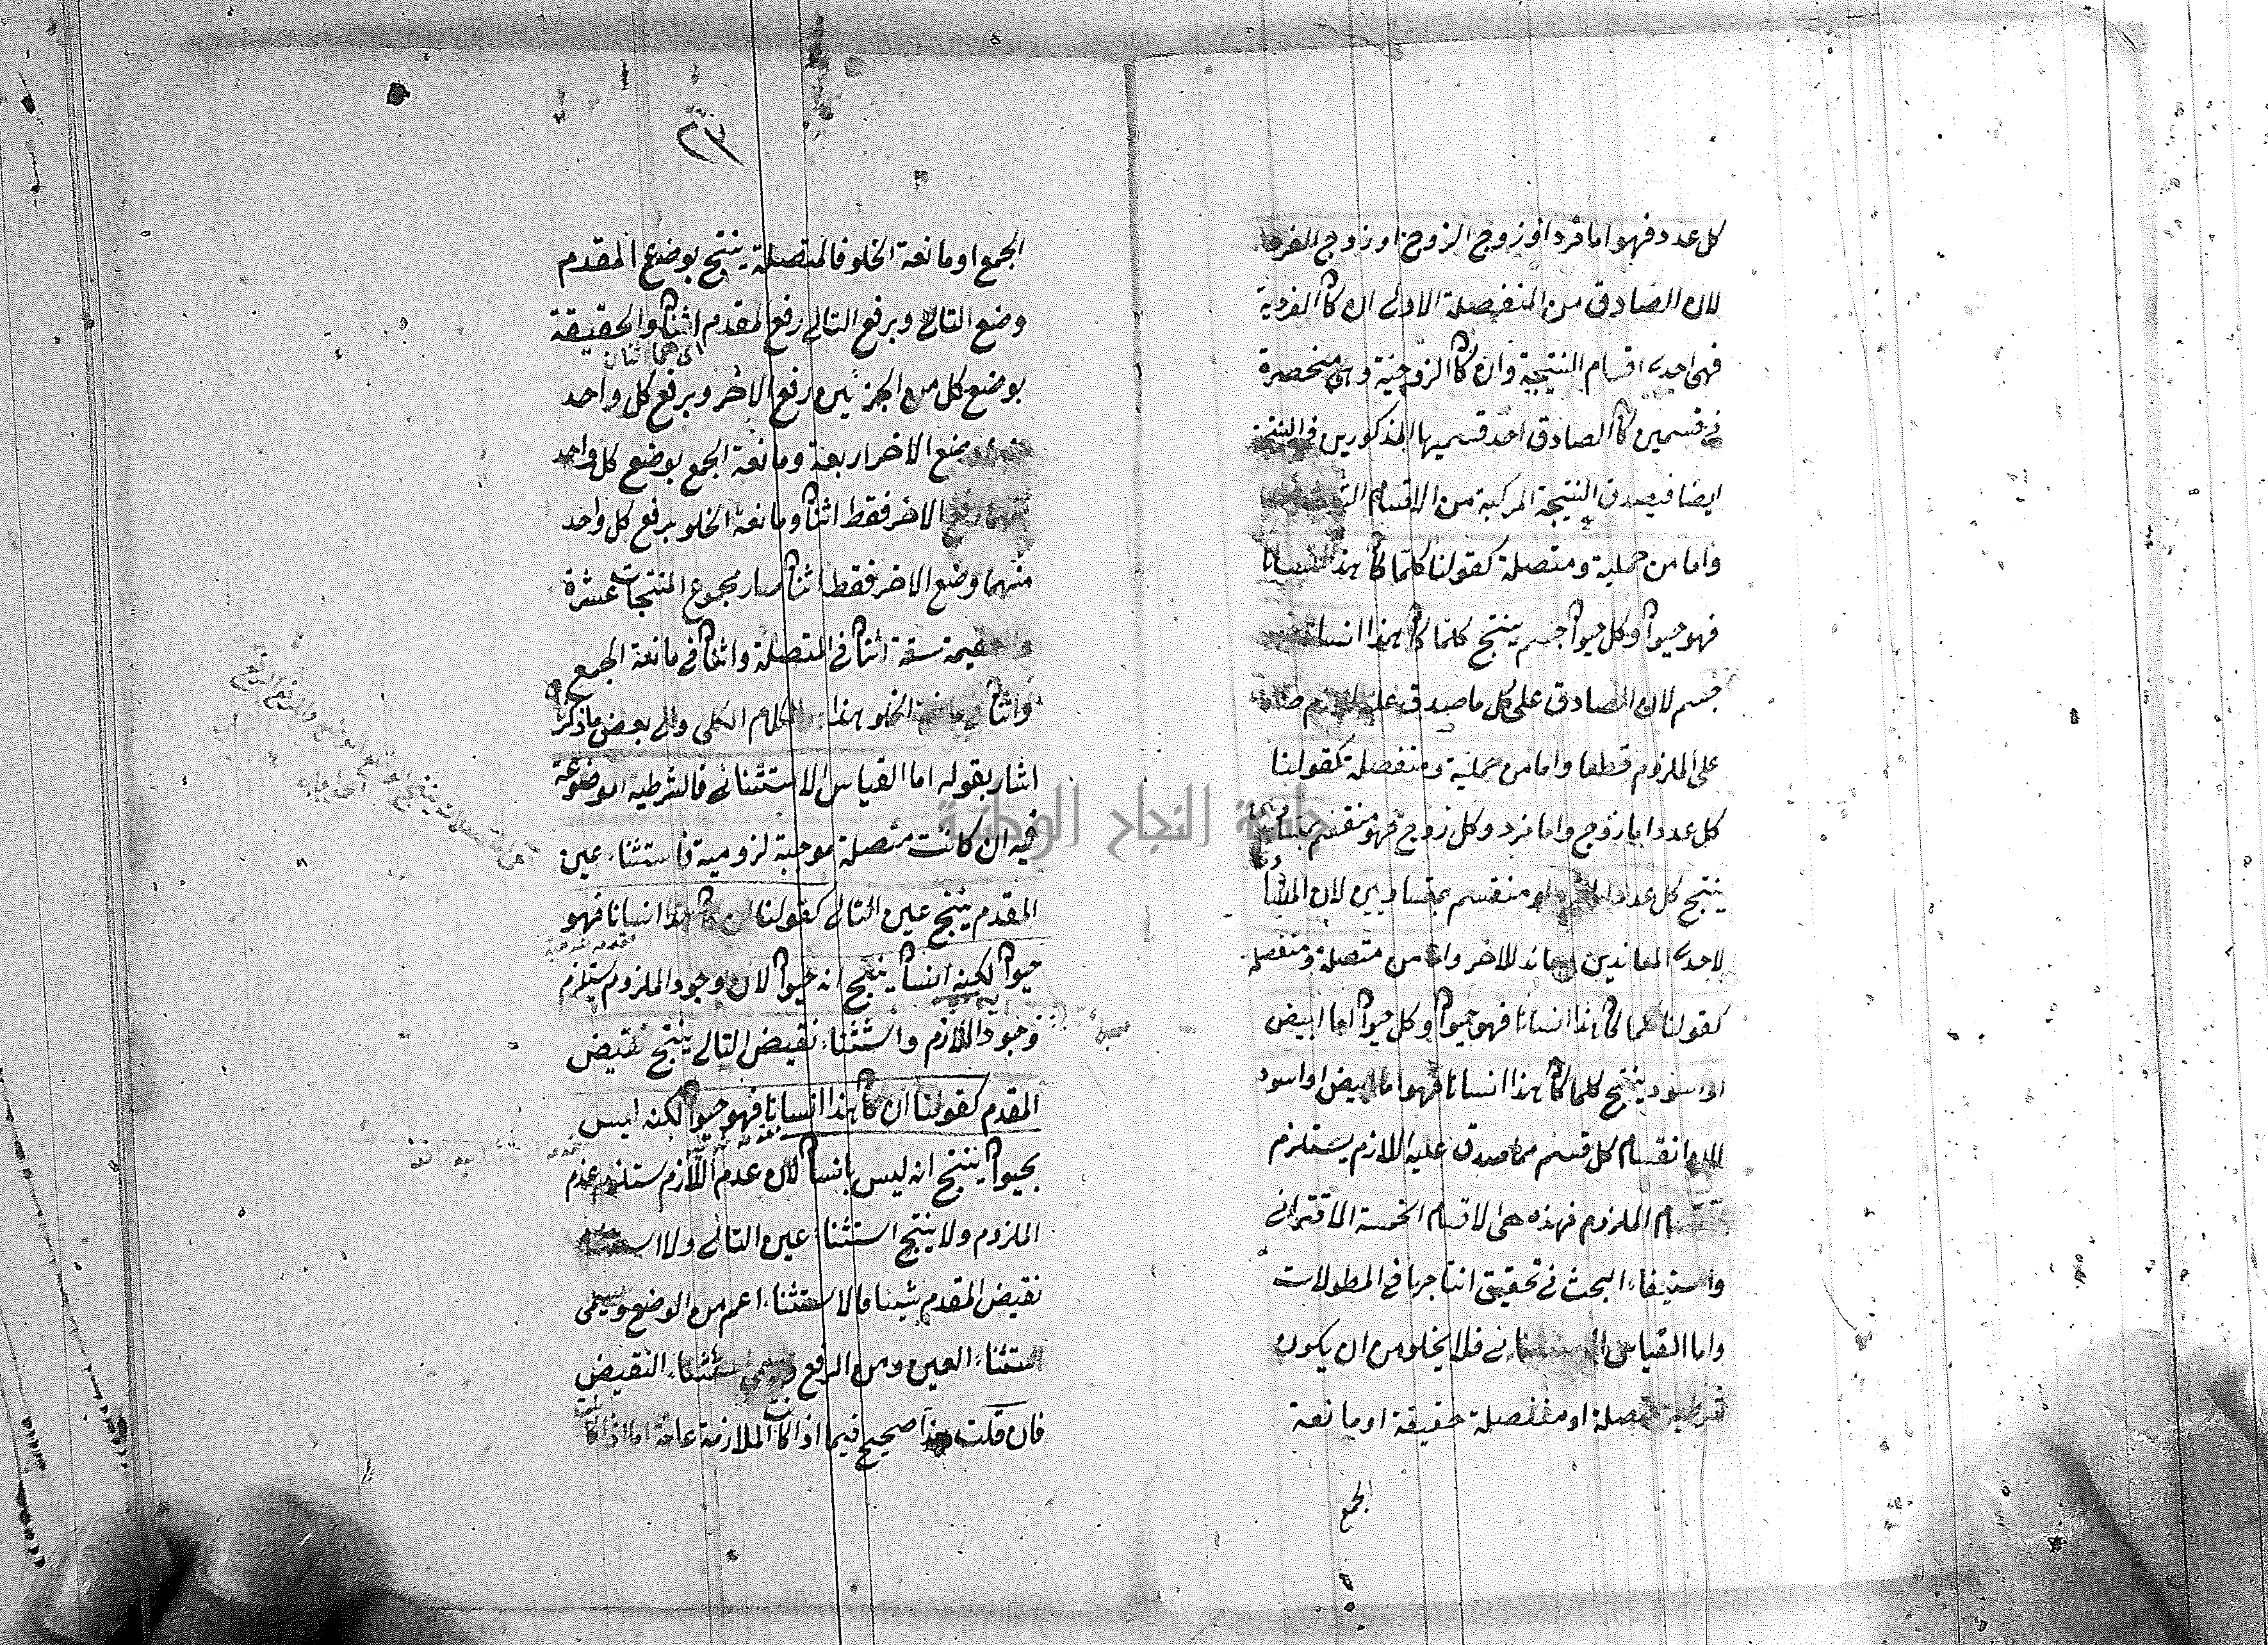 كل عدد فهو اما فرد او زوج الزوج او زوج الفرد
لان الصادق من المنفصلة الاولى ان كان الفردية
فهى احدى اقسام النتيجة وان كان الزوجية وهى منحصرة
فى قسمين كان الصادق احد قسميها المذكورين فى النتيجة
ايضا فيصدق النتيجة المركبة من الاقسام
واما من حملية ومتصلة كقولنا كلما كان هذا انسانا
فهو حيوان وكل حيوان جسم ينتج كلما كان هذا انسانا
جسم لان الصادق على كل ما صدق عليه اللازم صادق
على الملزوم قطعا واما من حملية ومنفصلة كقولنا
كل عدد اما زوج واما فرد وكل زوج فهو منقسم بمتساويين
ينتج كل عدد اما فرد او منقسم بمتساويين لان
لاحدى المعاندين معاند للاخر واما من متصلة ومنفصلة
كقولنا كلما كان هذا انسانا فهو حيوان وكل حيوان اما ابيض
او اسود ينتج كلما كان هذا انسانا فهو اما ابيض او اسود
لان انقسام كل قسم مما صدق عليه اللازم يستلزم
انقسام الملزوم فهذه هى الاقسام الخمسة الاقترانى
واستيفاء البحث فى تحقيق انتاجها فى المطولات
واما القياس الاستثنائى فلا يخلو من ان يكون
شرطية متصلة او منفصلة حقيقة او مانعة
الجمع
٢٣
الجمع او مانعة الخلو فالمتصلة ينتج بوضع المقدم
وضع التالى وبرفع التالى رفع المقدم اثنان والحقيقة
اى هما اثنان
بوضع كل من الجزئين رفع الاخر وبرفع كل واحد
وضع الاخر اربعة ومانعة الجمع بوضع كل واحد
منهما رفع الاخر فقط اثنان ومانعة الخلو برفع كل واحد
منهما وضع الاخر فقط اثنان صار مجموع المنتجات عشرة
والعقيمة ستة اثنان فى المتصلة واثنان فى مانعة الجمع
واثنان فى مانعة الخلو هذا هو الكلام الكلى والى بعض ما ذكرنا
اشار بقوله اما القياس الاستثنائى فالشرطية الموضوعة
فيه ان كانت متصلة موجبة لزومية فاستثناء عين
المقدم ينتج عين التالى كقولنا ان كان هذا انسانا فهو
حيوان لكنه انسان ينتج انه حيوان لان وجود الملزوم يستلزم
وجود اللازم واستثناء نقيض التالى ينتج نقيض
المقدم كقولنا ان كان هذا انسانا فهو حيوان لكنه ليس
بحيوان ينتج انه ليس بانسان لان عدم اللازم يستلزم عدم
الملزوم ولا ينتج استثناء عين التالى ولا استثناء
نقيض المقدم شيئا فالاستثناء اعم من الوضع ويسمى
استثناء العين ومن الرفع ويسمى استثناء النقيض
فان قلت هذا صحيح فيما اذا كان الملازمة عامة اما اذا كان
جامعة النجاح الوطنية